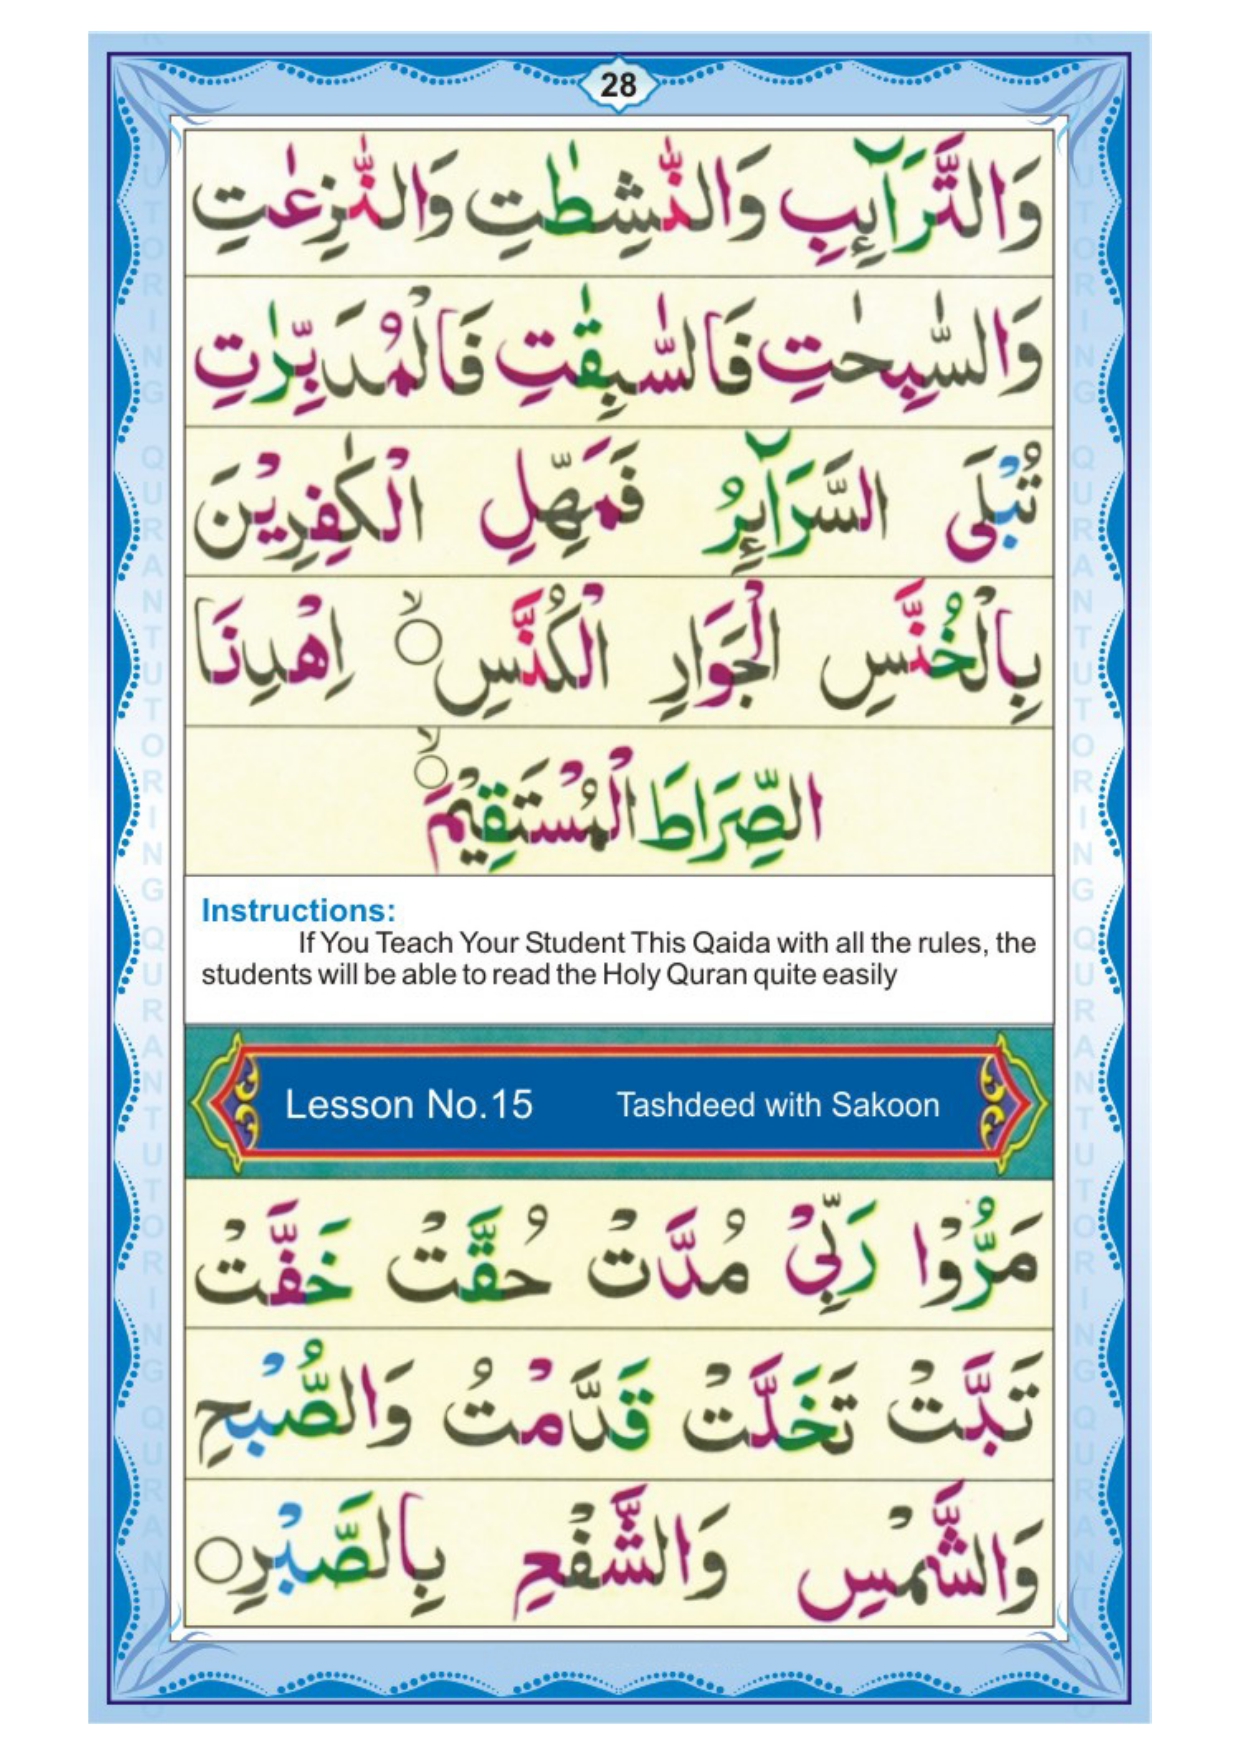 28
وَالتَّرَآئِبِ وَالنّٰشِطٰتِ وَالنّٰزِعٰتِ
وَالسّٰبِحٰتِ فَالسّٰبِقٰتِ فَالْمُدَبِّرٰتِ
تُبْلَى السَّرَآئِرُ فَمَهِّلِ الْكٰفِرِيْنَ
بِالْخُنَّسِ الْجَوَارِ الْكُنَّسِ ۙ اِهْدِنَا
الصِّرَاطَ الْمُسْتَقِيْمَ ۙ
Instructions:
If You Teach Your Student This Qaida with all the rules, the
students will be able to read the Holy Quran quite easily
Lesson No.15 Tashdeed with Sakoon
مَرُّوْا رَبِّيْ مُدَّتْ حُقَّتْ خَفَّتْ
تَبَّتْ تَخَلَّتْ قَدَّمْتُ وَالصُّبْحِ
وَالشَّمْسِ وَالشَّفْعِ بِالصَّبْرِ ○
QURAN TUTORING QURAN TUTORING QURANT
QURAN TUTORING QURAN TUTORING QURANT